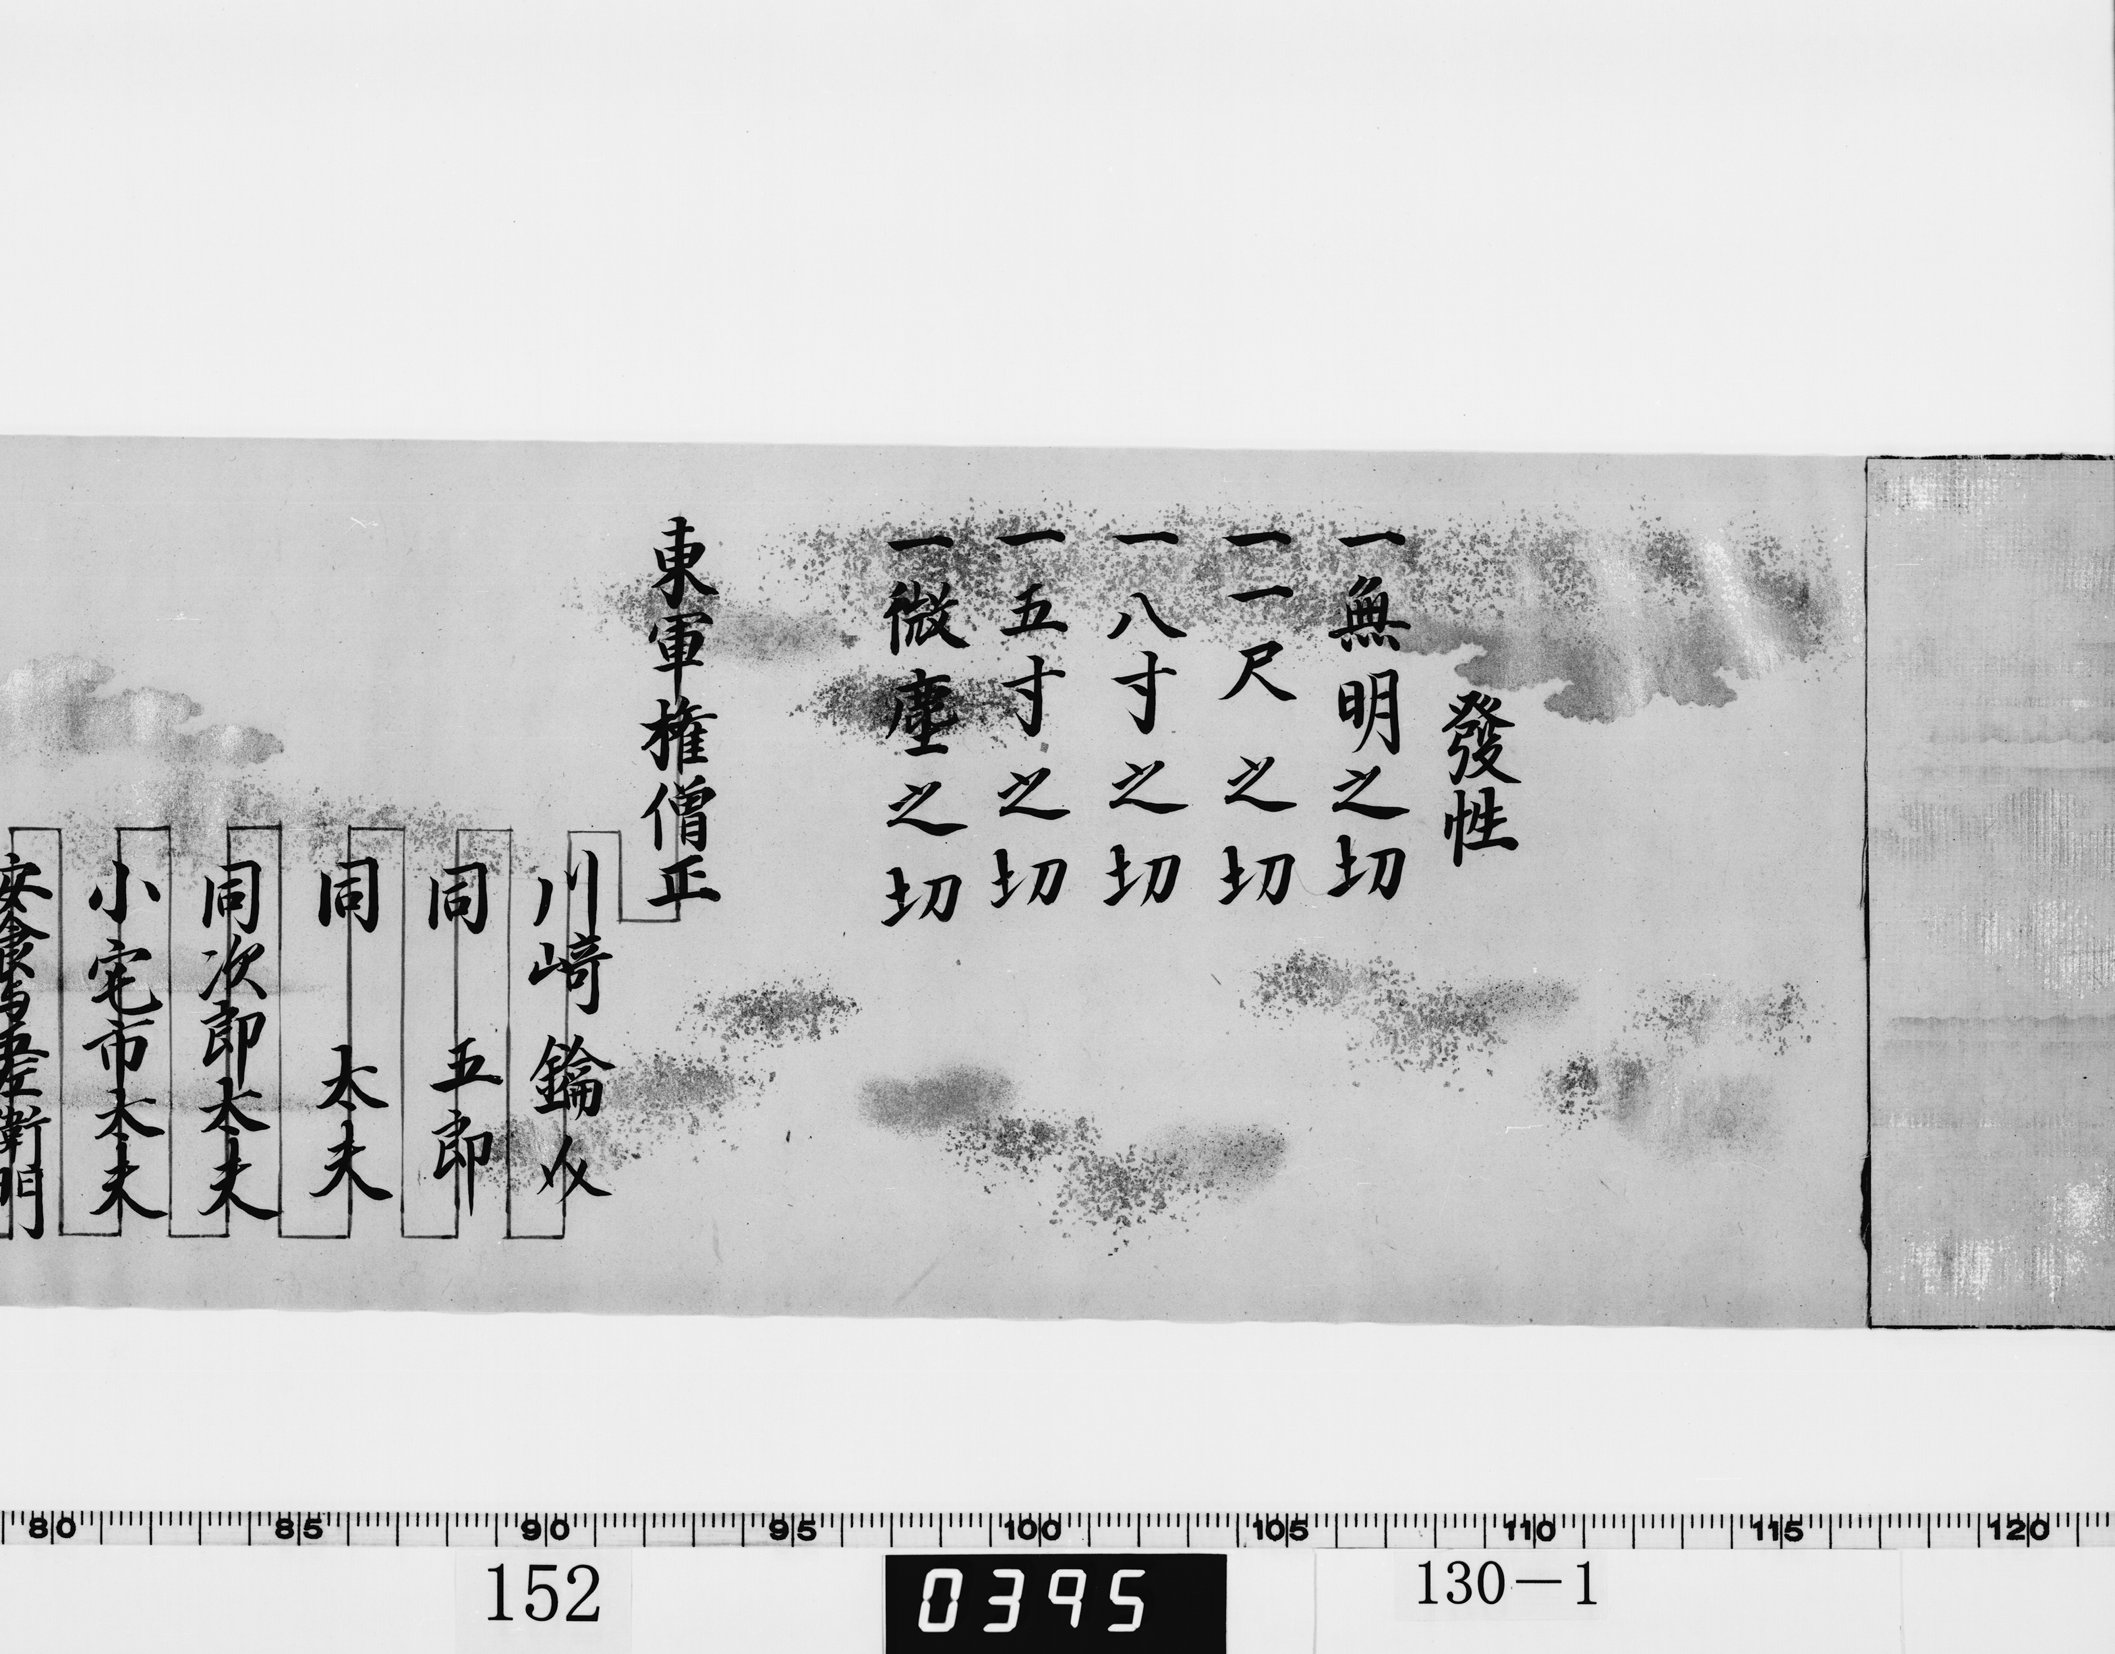 發性
一無明之切
一一尺之切
一八寸之切
一五寸之切
一微塵之切
東軍権僧正
川﨑鑰
同 五郎
同 太夫
同次郎太夫
小宅市太夫
安食
左衛門
80 85 90 95 100 105 110 115 120
152
0395
130-1